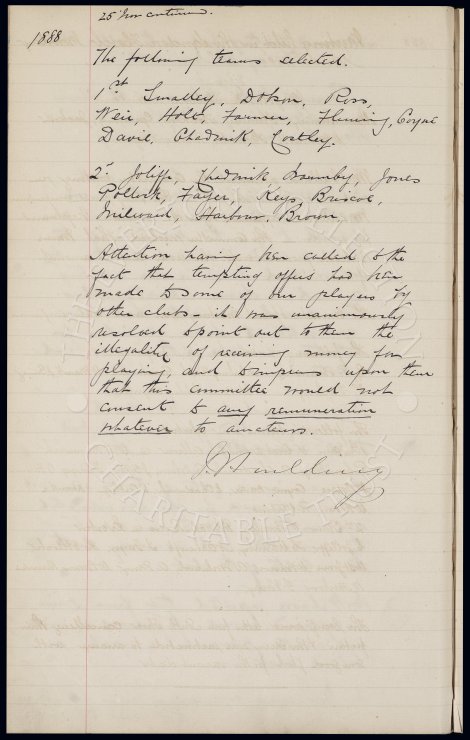 25 Nov continued.
1888
The following teams selected.
1st Smalley, Dobson, Ross,
Weir, Holt, Farmer, Fleming, Coyne
Davie, Chadwick, Costley.
2nd Joliffe, Chadwick, Jones
Pollock, Fayer, Keys, Briscoe,
Milward, Harbour, Brown,
Attention having been called to the
fact that tempting offers had been
made to some of our players by
other clubs - it was unanimously
resolved to point out to them the
illegality of receiving money for
playing, and to impress upon them
that this committee would not
consent to any remuneration
whatever to amateurs.
J Houlding
THE EVERTON
CHARITABLE TRUST